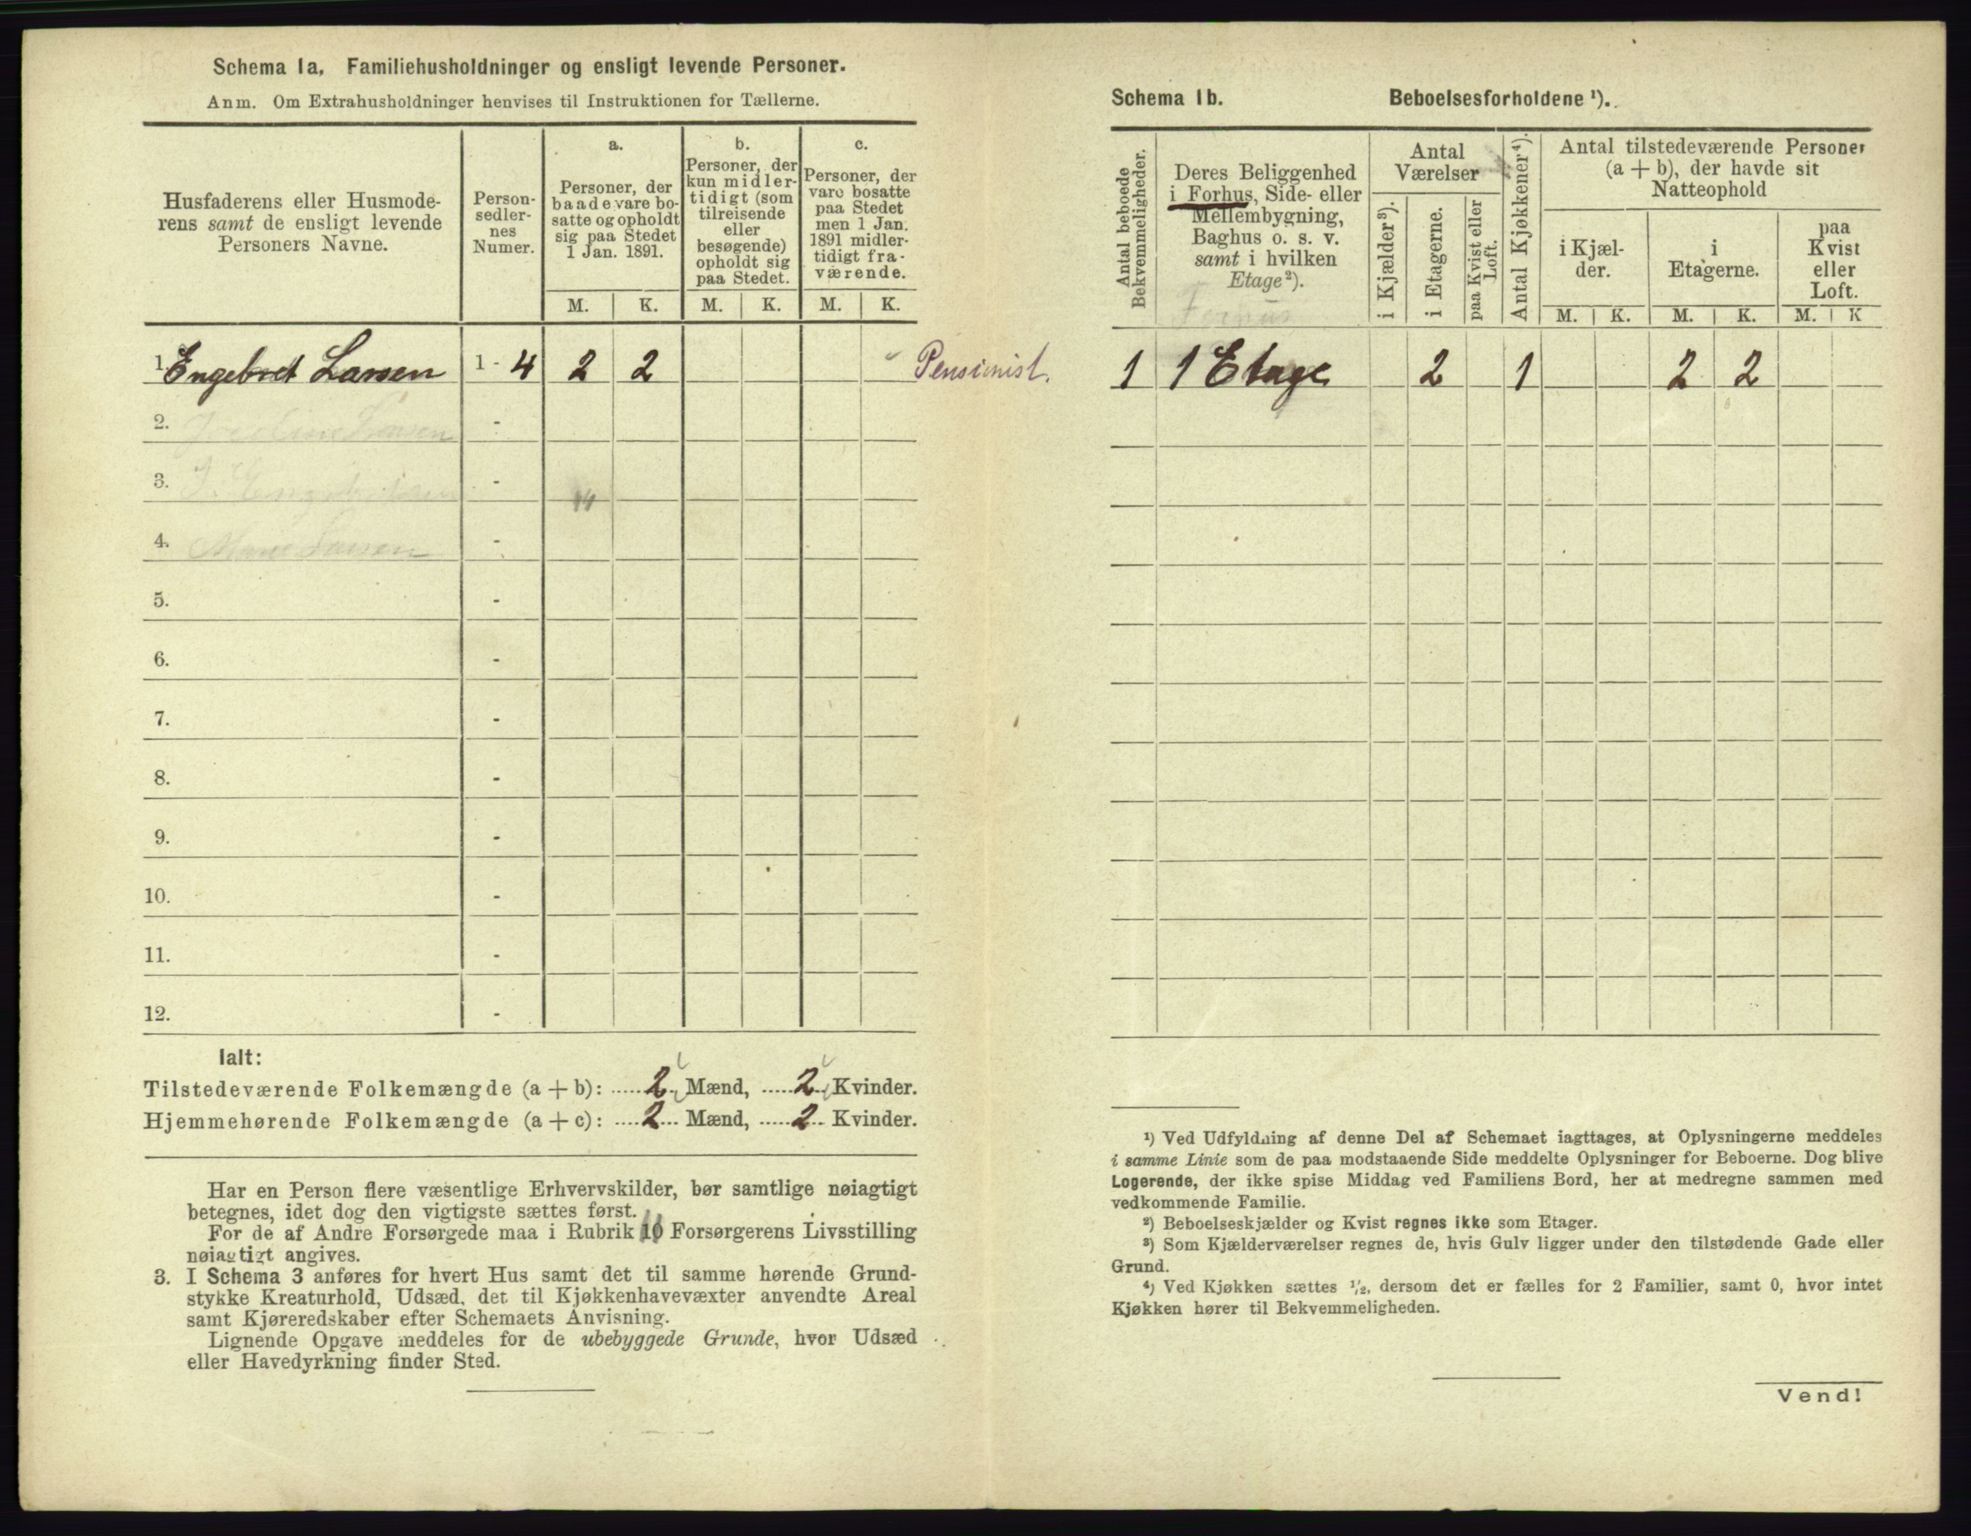 Schema 1a. Familiehusholdninger og ensligt levende Personer.
Anm. Om Extrahusholdninger henvises til Instruktionen for Tællerne.
Husfaderens eller Husmode-
rens samt de ensligt levende
Personers Navne.
Person-
sedler-
nes
Numer.
a.
Personer, der
baade vare bo-
satte og opholdt
sig paa Stedet
1 Jan. 1891.
b.
Personer, der
kun midler-
tidigt (som
tilreisende
eller
besøgende)
opholdt sig
paa Stedet.
c.
Personer, der
vare bosatte
paa Stedet
men 1 Jan.
1891 midler-
tidigt fra-
værende.
M. K. M. K. M. K.
1. Engebret Larsen 1 - 4 2 2 Pensionist.
2. Larsen -
3. -
4. Larsen -
5. -
6. -
7. -
8. -
9. -
10. -
11. -
12. -
Ialt:
Tilstedeværende Folkemængde (a + b): 2 Mænd, 2 Kvinder.
Hjemmehørende Folkemængde (a + c): 2 Mænd, 2 Kvinder.
Har en Person flere væsentlige Erhvervskilder, bør samtlige nøiagtigt
betegnes, idet dog den vigtigste sættes først.
For de af Andre Forsørgede maa i Rubrik Forsørgerens Livsstilling
nøiagtigt angives.
3. I Schema 3 anføres for hvert Hus samt det til samme hørende Grund-
stykke Kreaturhold, Udsæd, det til Kjøkkenhavevæxter anvendte Areal
samt Kjøreredskaber efter Schemaets Anvisning.
Lignende Opgave meddeles for de ubebyggede Grunde, hvor Udsæd
eller Havedyrkning finder Sted.
Schema 1b. Beboelsesforholdene ¹).
Antal beboede
Bekvemmeligheder.
Deres Beliggenhed
i Forhus, Side- eller
Mellembygning,
Baghus o. s. v.
samt i hvilken
Etage²).
Forhus
Antal
Værelser
i Kjælder³).
i Etagerne.
paa Kvist eller
Loft.
Antal Kjøkkener⁴).
Antal tilstedeværende Personer
(a + b), der havde sit
Natteophold
i Kjæl-
der.
i
Etagerne.
paa
Kvist
eller
Loft.
M. K. M. K. M. K
1 1 Etage 2 1 2 2
¹) Ved Udfyldning af denne Del af Schemaet iagttages, at Oplysningerne meddeles
i samme Linie som de paa modstaaende Side meddelte Oplysninger for Beboerne. Dog blive
Logerende, der ikke spise Middag ved Familiens Bord, her at medregne sammen med
vedkommende Familie.
²) Beboelseskjælder og Kvist regnes ikke som Etager.
³) Som Kjælderværelser regnes de, hvis Gulv ligger under den tilstødende Gade eller
Grund.
⁴) Ved Kjøkken sættes ¹/₂, dersom det er fælles for 2 Familier, samt 0, hvor intet
Kjøkken hører til Bekvemmeligheden.
Vend!